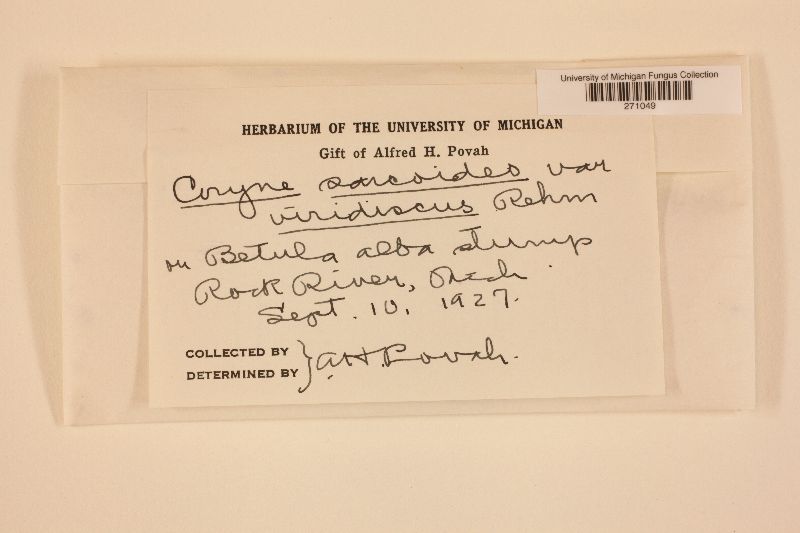 University of Michigan Fungus Collection
271049
HERBARIUM OF THE UNIVERSITY OF MICHIGAN
Gift of Alfred H. Povah
Coryne sarcoides var
viridiscus Rehm
on Betula alba stump
Rock River, Mich.
Sept. 10, 1927.
COLLECTED BY
DETERMINED BY } A.H. Povah.